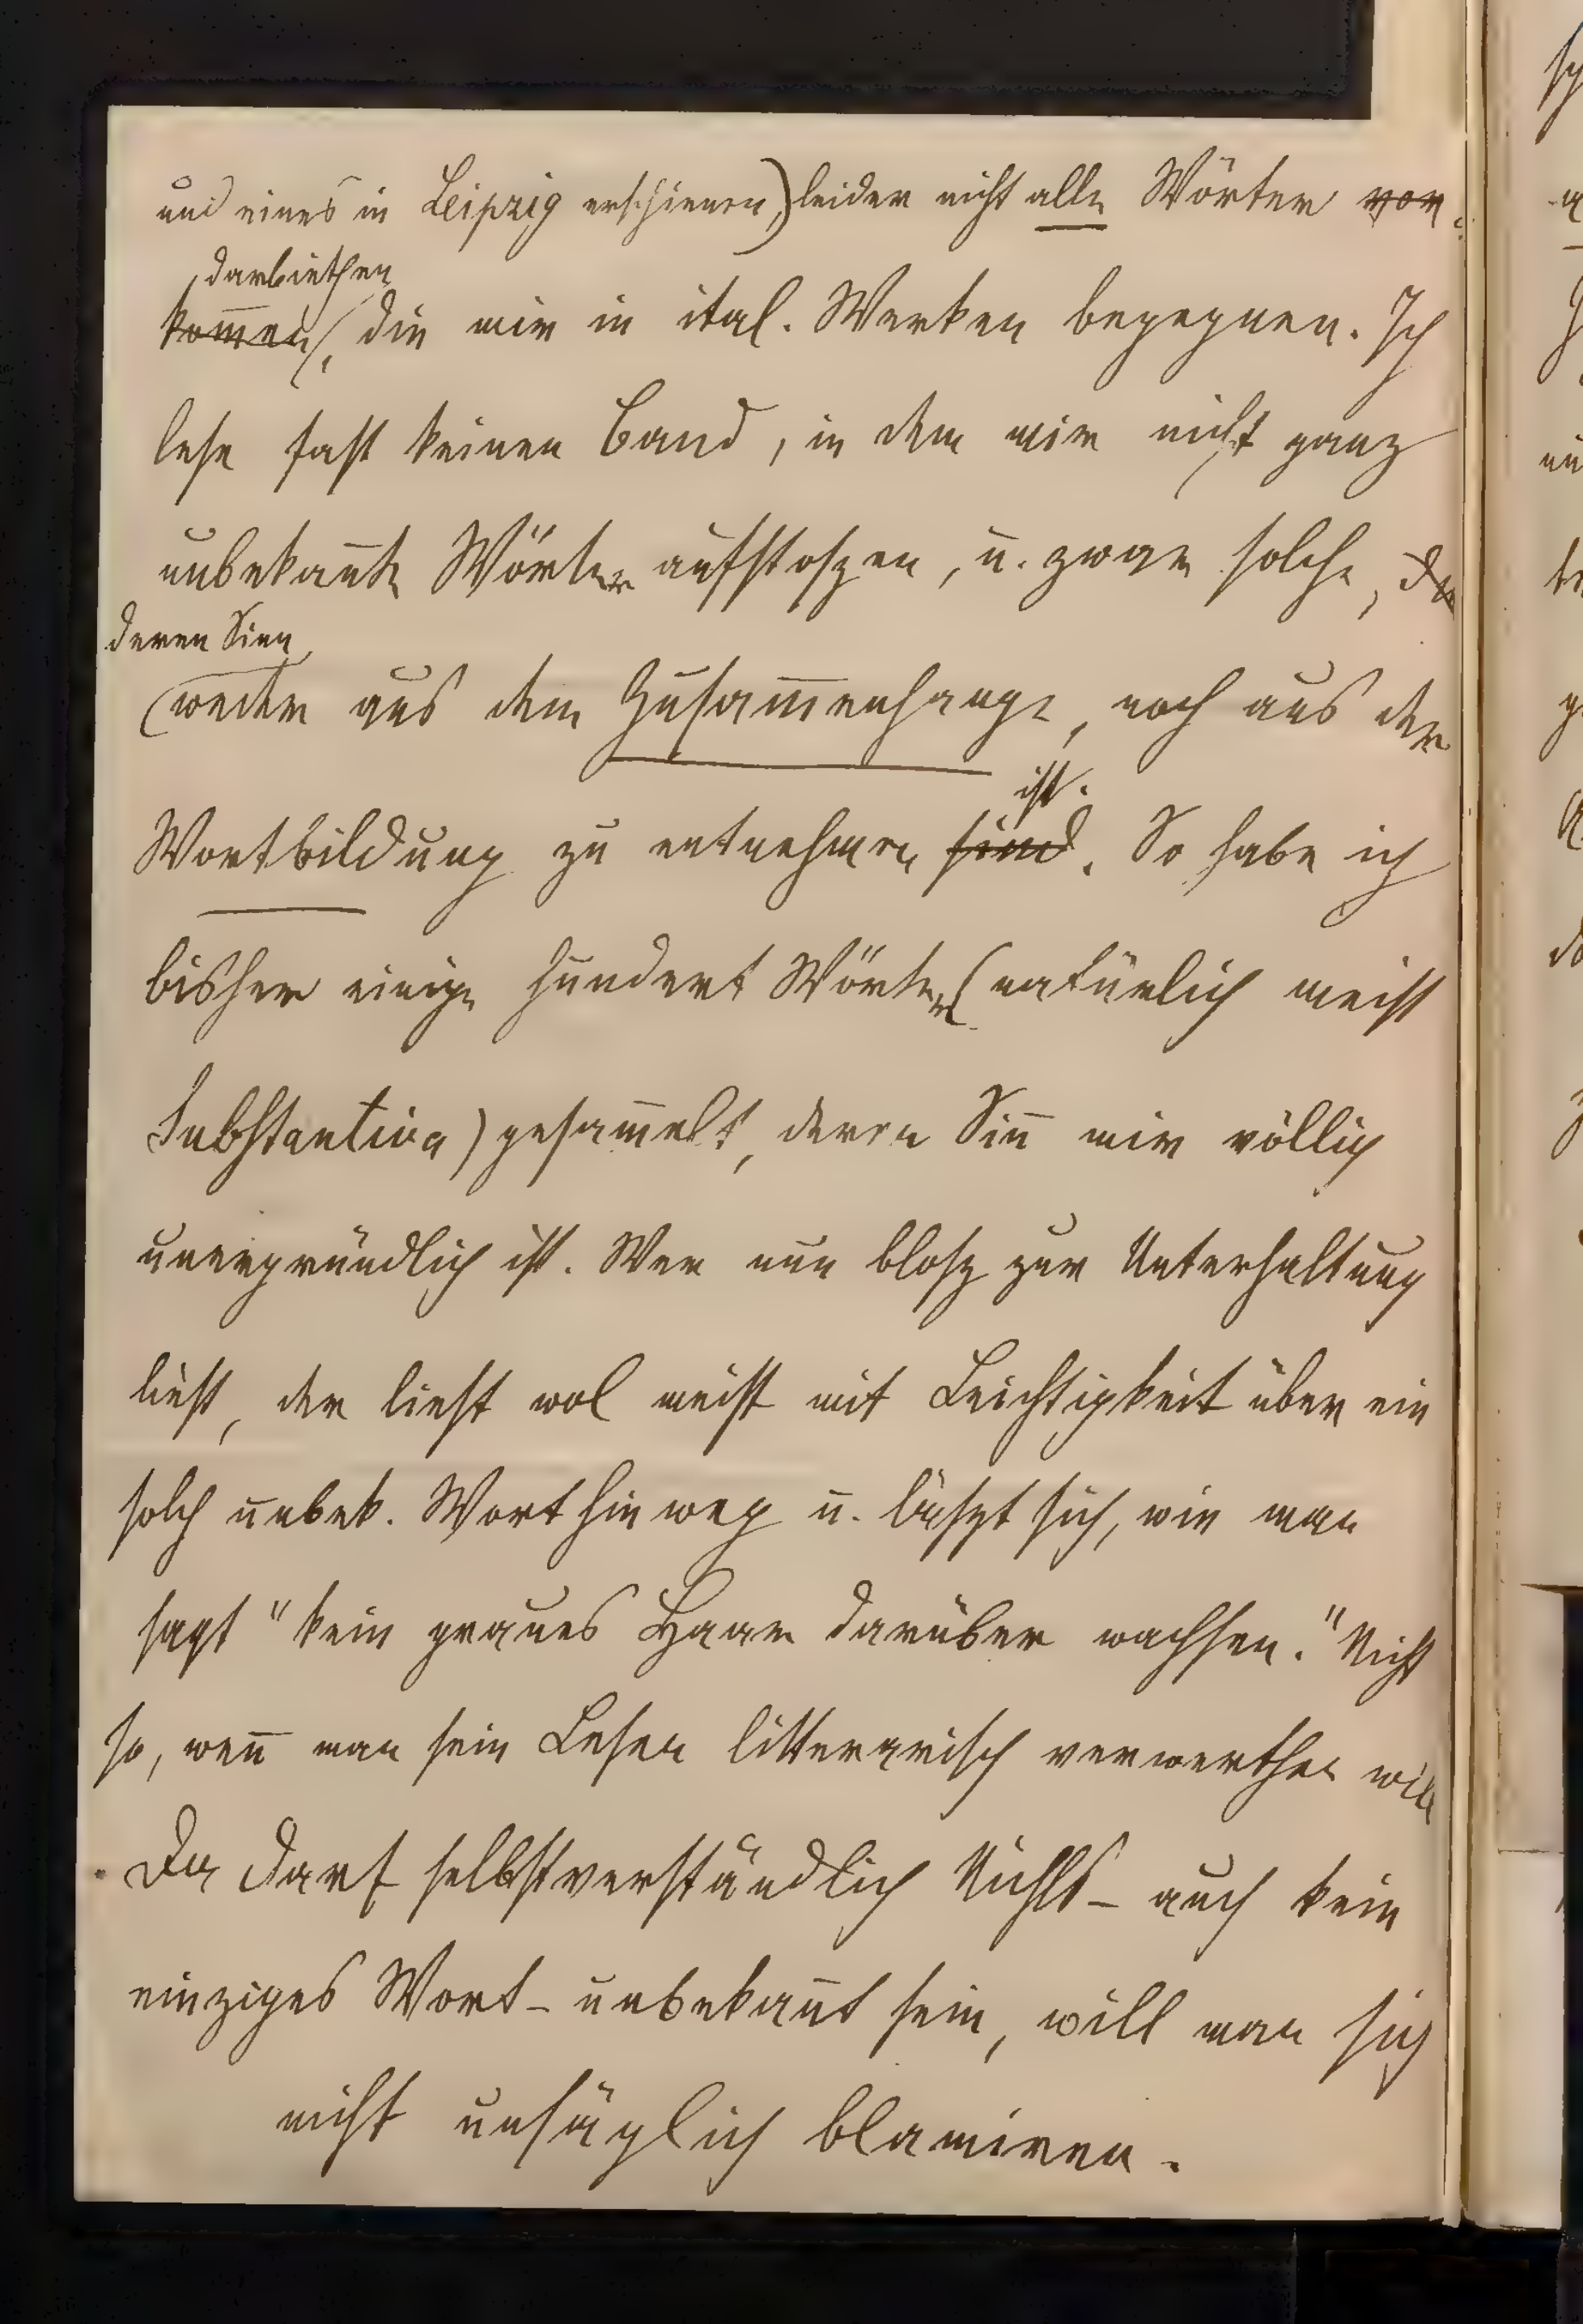 und eines in Leipzig erschienen,) leider nicht alle Wörter vor-
darbiethen
kom̄en, die mir in ital. Werken begegnen. Ich
lese fast keinen Band, in dem mir nicht ganz
unbekan̄te Wörter aufstoszen, u. zwar solche, die
deren Sinn
weder aus dem Zusam̄enhange, noch aus der
ist.
Wortbildung zu entnehmen sind. So habe ich
bisher einige hundert Wörter (natürlich meist
Substantiva) gesam̄elt, deren Sin̄ mir völlig
unergründlich ist. Wer nun blosz zur Unterhaltung
liest, der liest wol meist mit Leichtigkeit über ein
solch unbek. Wort hinweg u. läszt sich, wie man
sagt "kein graues Haar darüber wachsen." Nicht
so, wen̄ man sein Lesen litterarisch verwerthen will
Da darf selbstverständlich Nichts – auch kein
einziges Wort – unbekan̄t sein, will man sich
nicht unsäglich blamiren.